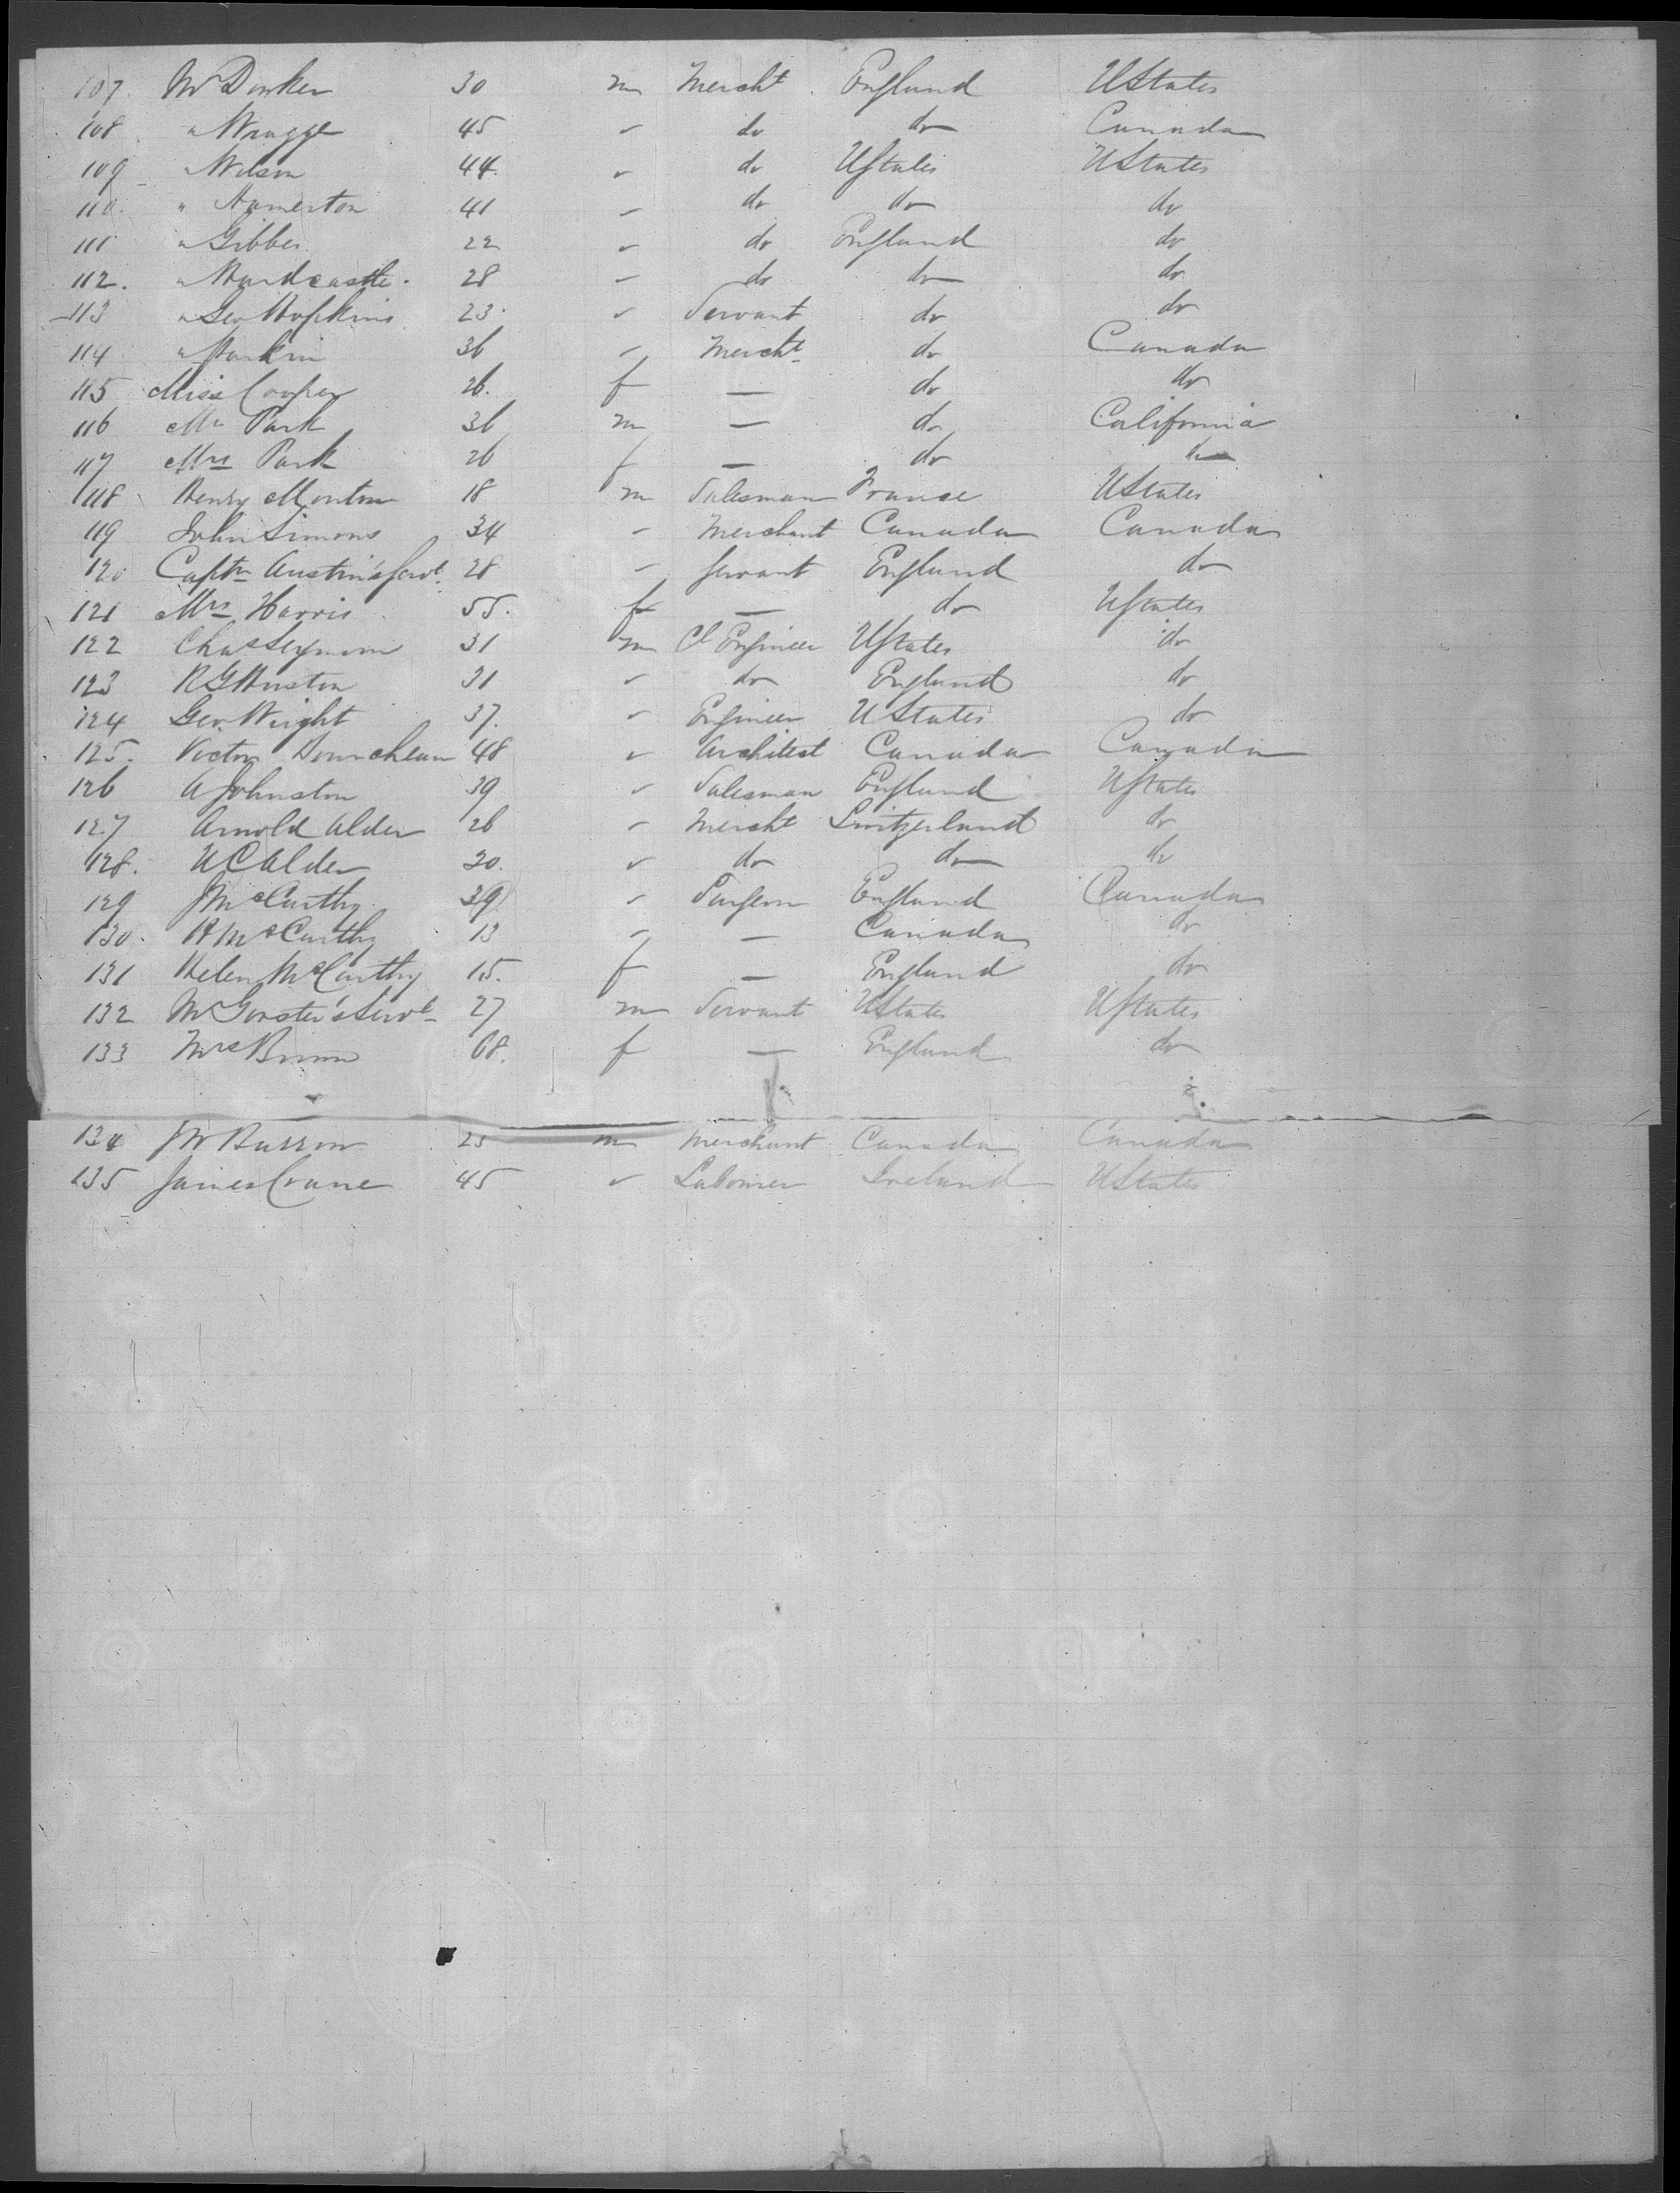 107. Mr Donker 30 m Mercht England UStates
108 " Wragge 45 " do do Canada
109 " Wilson 44. " do UStates UStates
110. " Hamerton 41 " do do do
111 " Gibbes 22 " do England do
112. " Hardcastle. 28 " do do do
113 " Geo Hopkins 23. " Servant do do
114 " Parkin 36 " Mercht do Canada
115 Miss Cooper 26. f — do do
116 Mr Park 36 m — do California
117 Mrs Park 26 f — do do
118 Henry Monton 18 m Salesman France UStates
119 John Simons 34 " Merchant Canada Canada
120 Captn Austin's Servt 28 " Servant England do
121 Mrs Harris 55. f — do UStates
122 Chas Seymour 31 m Cl Engineer UStates do
123 R G Huston 31 " do England do
124 Geo Wright 37. " Engineer UStates do
125. Victor 48 " Architect Canada Canada
126 A Johnston 39 " Salesman England UStates
127 Arnold Alder 26 " Mercht Switzerland do
128. Alder 20. " do do do
129 J McCarthy 39 " Surgeon England Canada
130. H McCarthy 13 " — Canada do
131 Helen McCarthy 15. f — England do
132 Mr Servt 27 m Servant UStates UStates
133 Mrs 68. f — England do
134 J W Burrow 25 m Merchant Canada Canada
135 James Crane 45 " Labourer Ireland UStates